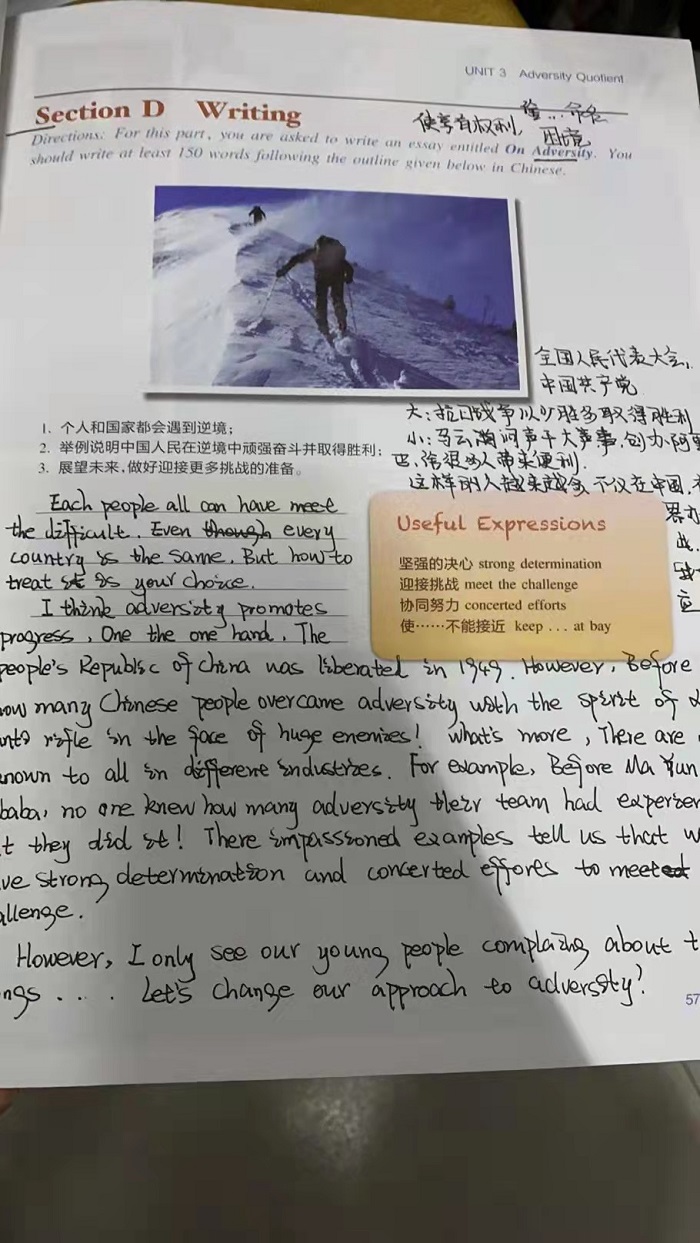 UNIT 3 Adversity Quotient
Section D Writing
使享有权利, 命名
困境
Directions: For this part, you are asked to write an essay entitled On Adversity. You
should write at least 150 words following the outline given below in Chinese.
全国人民代表大会,
中国共产党
大:抗日战争以少胜多取得胜利
1. 个人和国家都会遇到逆境;
小:马云 创办阿里
2. 举例说明中国人民在逆境中顽强奋斗并取得胜利;
巴,给很多人带来便利.
3. 展望未来,做好迎接更多挑战的准备。
这样的人越来越多 不仅在中国,
Each people all can have meet
the difficult. Even though every
country is the same. But how to
treat it is your choice.
I think adversity promotes
progress, One the one hand. The
Useful Expressions
坚强的决心 strong determination
迎接挑战 meet the challenge
协同努力 concerted efforts
使……不能接近 keep ... at bay
战.
应
people's Republic of China was liberated in 1949. However, Before
how many Chinese people overcame adversity with the spirit of
rifle in the face of huge enemies! What's more, There are
nown to all in different industries. For example, Before Ma Yun
baba, no one knew how many adversity their team had experien
t they did it! There impassioned examples tell us that w
ve strong determination and concerted effores to meet
allenge.
However, I only see our young people complaing about t
ngs .... Let's change our approach to adversity!
57